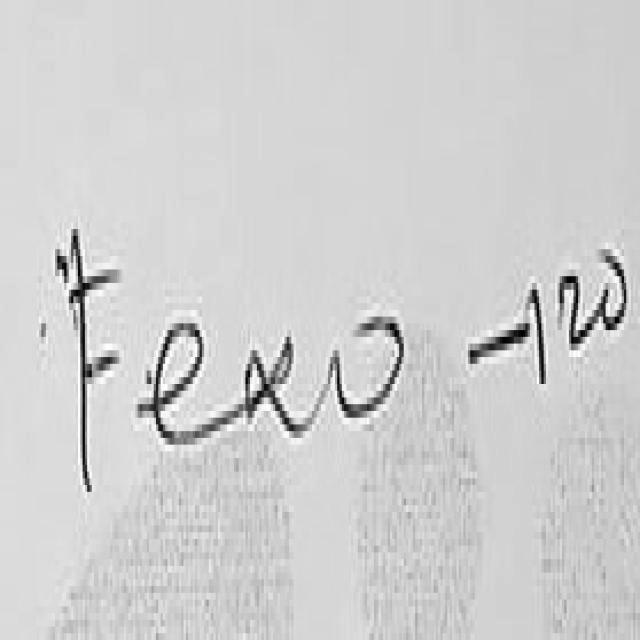 Fexo -120